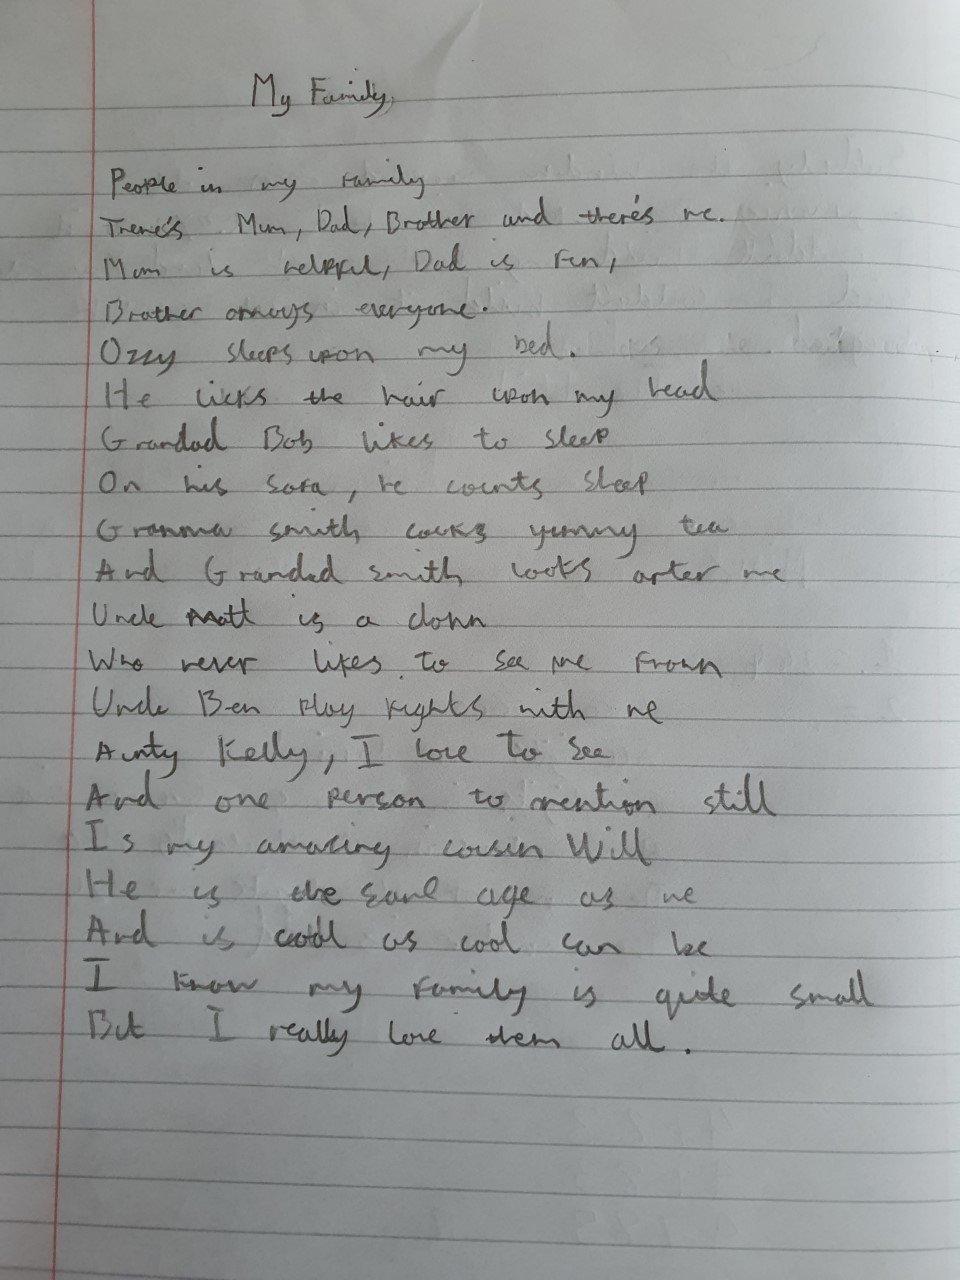 My Family,
People in my Family
There's Mum, Dad, Brother and there's me.
Mum is helpful, Dad is fun,
Brother annoys everyone.
Ozzy sleeps upon my bed.
He licks the hair upon my head
Grandad Bob likes to sleep
On his sofa, he counts sleep
Granma smith cooks yummy tea
And Grandad smith looks after me
Uncle Matt is a clown
Who never likes to see me frown
Uncle Ben play fights with me
Aunty Kelly, I love to see
And one person to mention still
Is my amazing cousin Will
He is the same age as me
And is cool as cool can be
I know my family is quite small
But I really love them all.